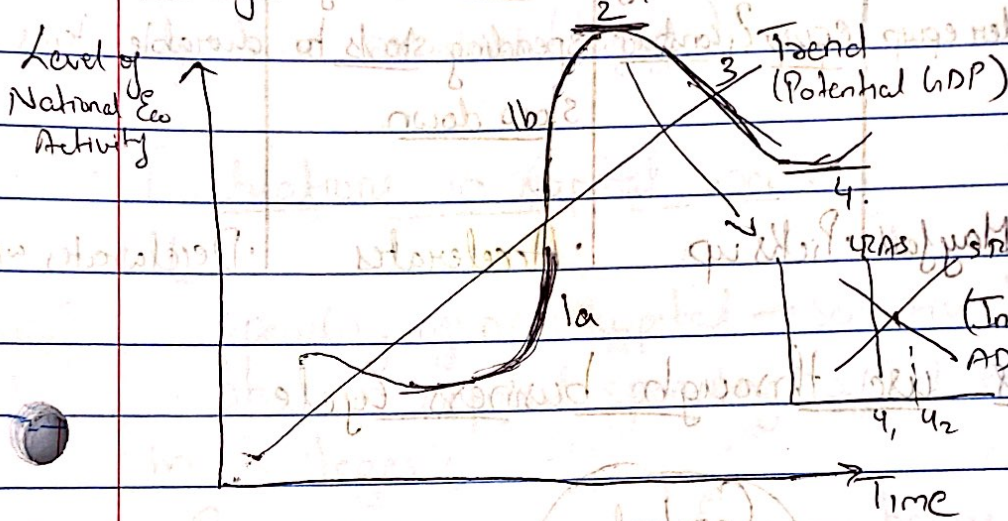 2
Level of
National Eco
Activity
Trend
(Potential GDP)
3
1b
4.
LRAS
1a
AD
y₁ y₂
Time